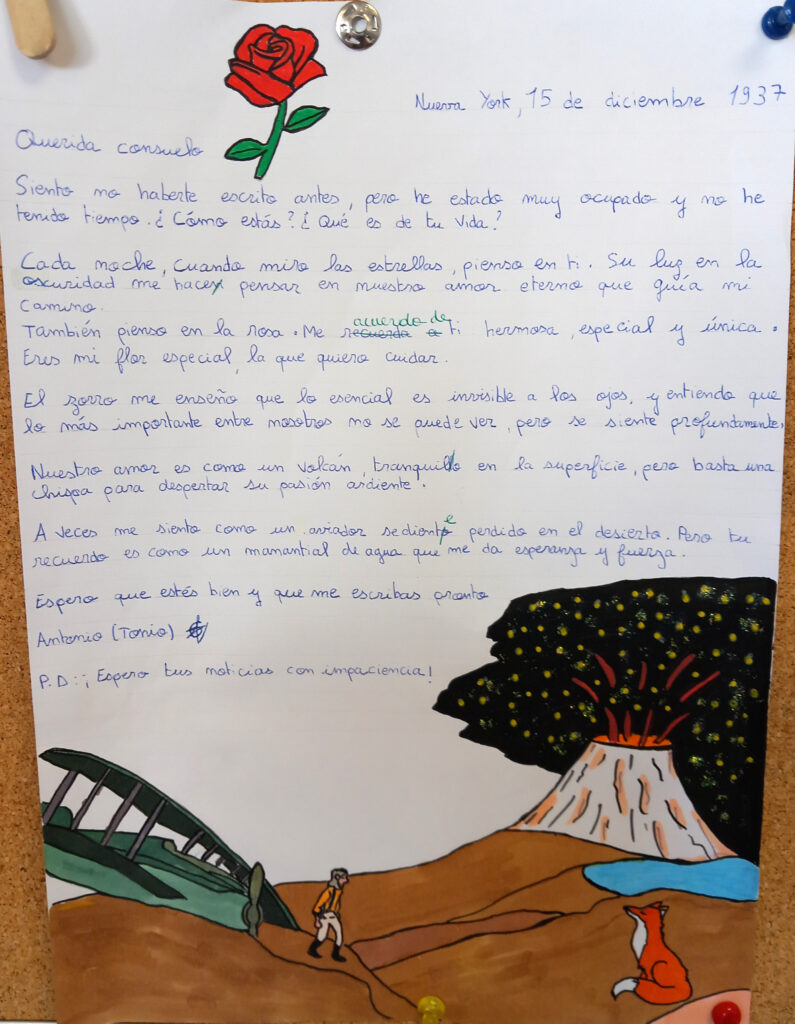 Nueva York, 15 de diciembre 1937
Querida consuelo
Siento no haberte escrito antes, pero he estado muy ocupado y no he
tenido tiempo. ¿Cómo estás? ¿Qué es de tu vida?
Cada noche, cuando miro las estrellas, pienso en ti. Su luz en la
oscuridad me hacen pensar en nuestro amor eterno que guía mi
camino.
acuerdo de
También pienso en la rosa. Me recuerda a ti hermosa, especial y única.
Eres mi flor especial, la que quiero cuidar.
El zorro me enseño que lo esencial es invisible a los ojos, y entiendo que
lo más importante entre nosotros no se puede ver, pero se siente profundamente.
Nuestro amor es como un volcán, tranquillo en la superficie, pero basta una
chispa para despertar su pasión ardiente.
A veces me siento como un aviador sediente perdido en el desierto. Pero tu
recuerdo es como un manantial de agua que me da esperanza y fuerza.
Espero que estés bien y que me escribas pronto
Antonio (Tonio)
P.D: ¡Espero tus noticias con impaciencia!